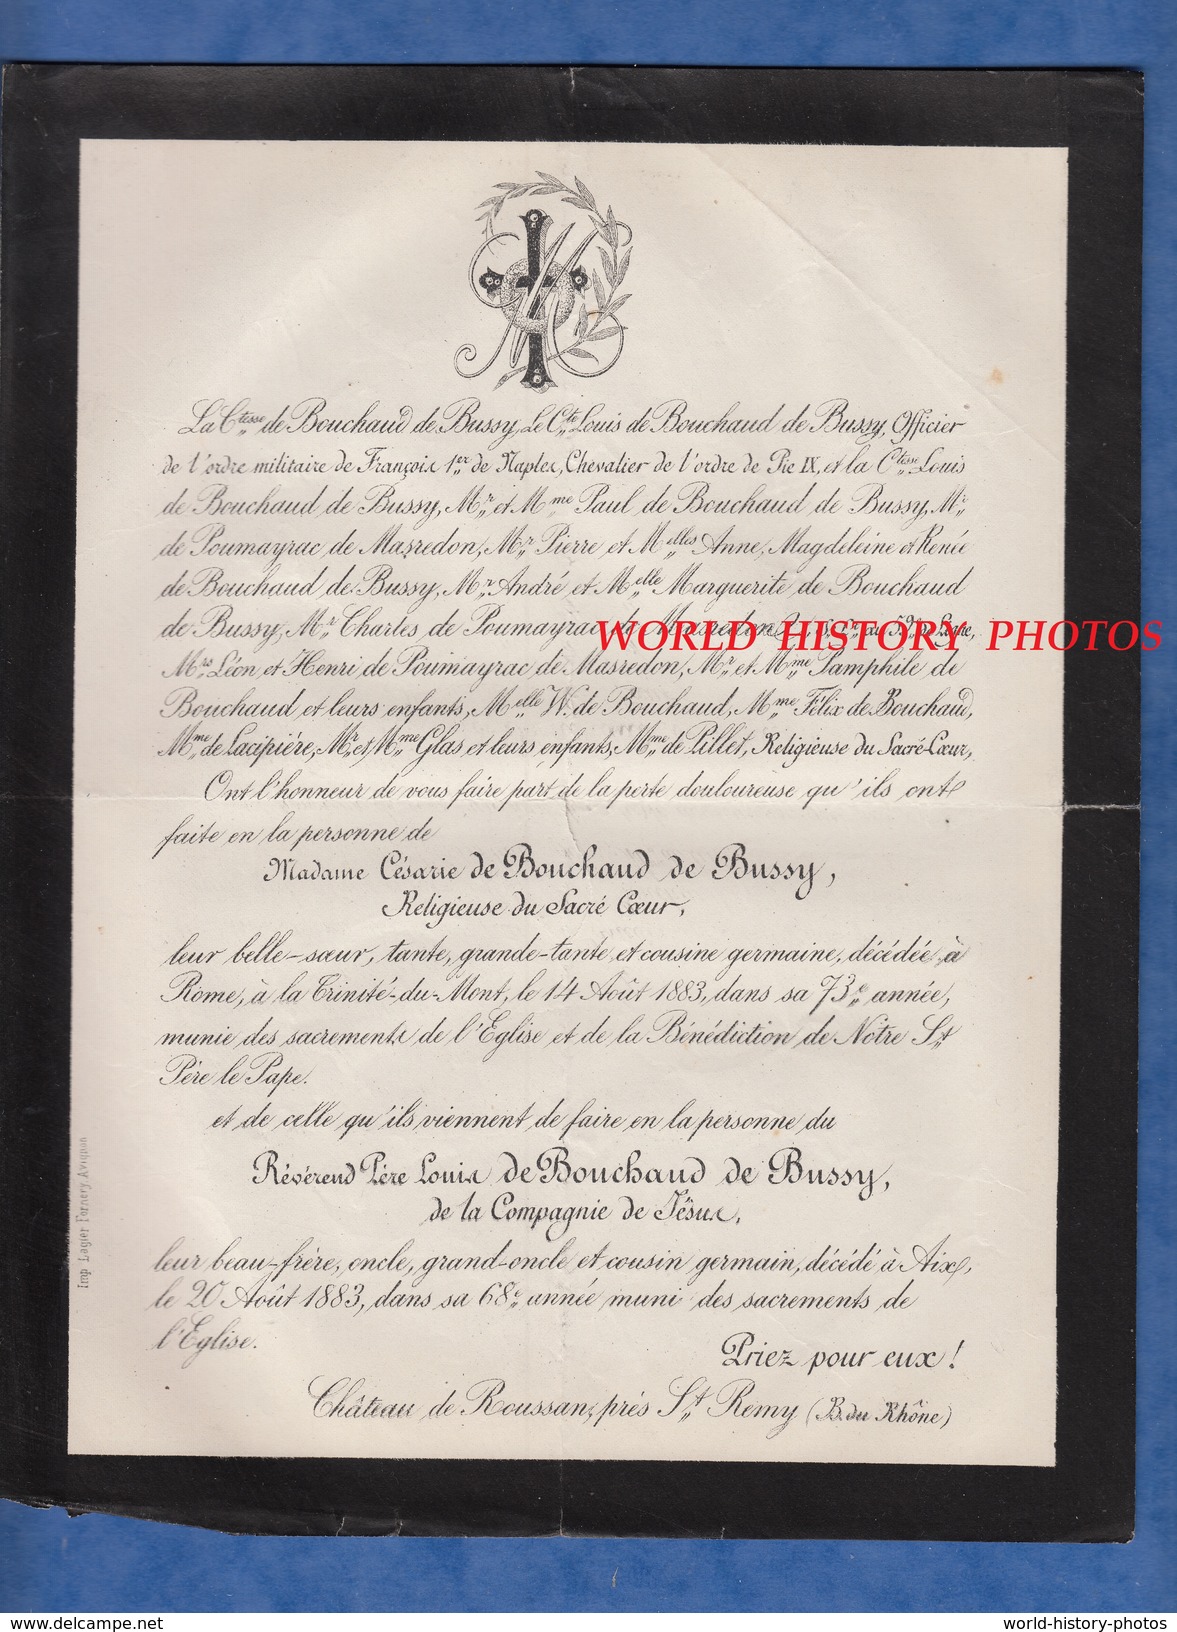 La Ctesse de Bouchaud de Bussy, Le Cte Louis de Bouchaud de Bussy, Officier
de l'ordre militaire de François 1er de Naples, Chevalier de l'ordre de Pie IX, et la Ctesse Louis
de Bouchaud de Bussy, Mr et Mme Paul de Bouchaud de Bussy, Mr
de Poumayrac de Masredon, Mr Pierre et Melles Anne, Magdeleine et Renée
de Bouchaud de Bussy, Mr André et Melle Marguerite de Bouchaud
de Bussy, Mr Charles de Poumayrac de Masredon
WORLD HISTORY PHOTOS
Mrs Léon et Henri de Poumayrac de Masredon, Mr et Mme Pamphile de
Bouchaud et leurs enfants, Melle W. de Bouchaud, Mme Félix de Bouchaud,
Mme de Lacipière, Mr et Mme Glas et leurs enfants, Mme de Pillet, Religieuse du Sacré-Cœur,
Ont l'honneur de vous faire part de la perte douloureuse qu'ils ont
faite en la personne de
Madame Césarie de Bouchaud de Bussy,
Religieuse du Sacré Cœur,
leur belle-sœur, tante, grande-tante et cousine germaine, décédée à
Rome, à la Trinité-du-Mont, le 14 Août 1883, dans sa 73e année,
munie des sacrements de l'Eglise et de la Bénédiction de Notre St
Père le Pape.
et de celle qu'ils viennent de faire en la personne du
Révérend Père Louis de Bouchaud de Bussy,
de la Compagnie de Jésus,
leur beau-frère, oncle, grand-oncle et cousin germain, décédé à Aix,
le 20 Août 1883, dans sa 68e année muni des sacrements de
l'Eglise.
Priez pour eux !
Château de Roussan, près St Remy (B. du Rhône)
Imp Lagier Fornery Avignon
www.delcampe.net
world-history-photos